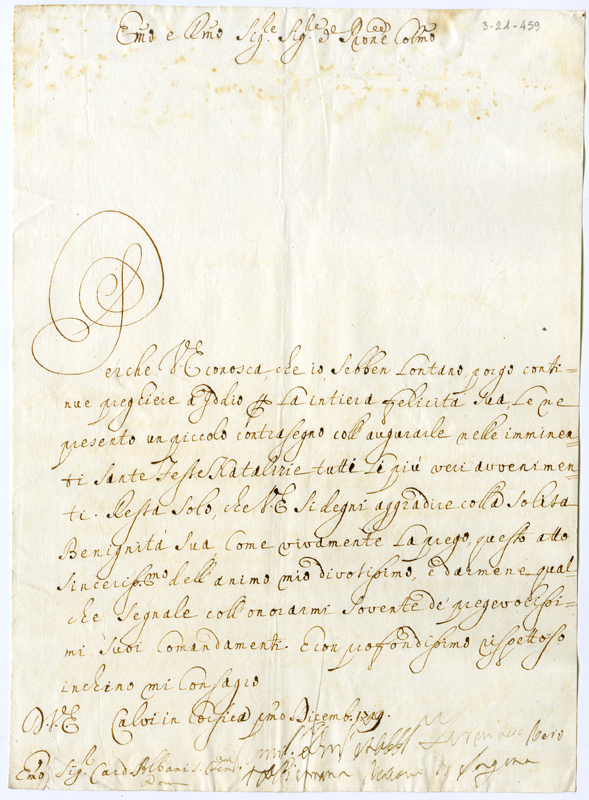 Emo e Rmo Sigre Sigre Prone Colmo
3-21-459
Perche V.E. conosca, che io, sebben Lontano, porgo conti=
nue preghiere à Iddio p La intiera felicità Sua, Le ne
presento un piccolo contrasegno coll'augurarle nelle imminen=
ti Sante Feste Natalizie tutti Le più veri avvenimen=
ti. Resta Solo, che V.E. Si degni aggradire colla Solita
Benignità Sua, Come vivamente La prego, questo atto
Sincerissmo dell'animo mio divotissimo, e darmene qual=
che Segnale coll'onorarmi Sovente de' pregevolissi=
mi Suoi Comandamenti. E con profondissimo rispettoso
inchino mi Consagro
D.V.E. Calvi in Corsica pmo Dicemb.
Emo Sigre Card Albani